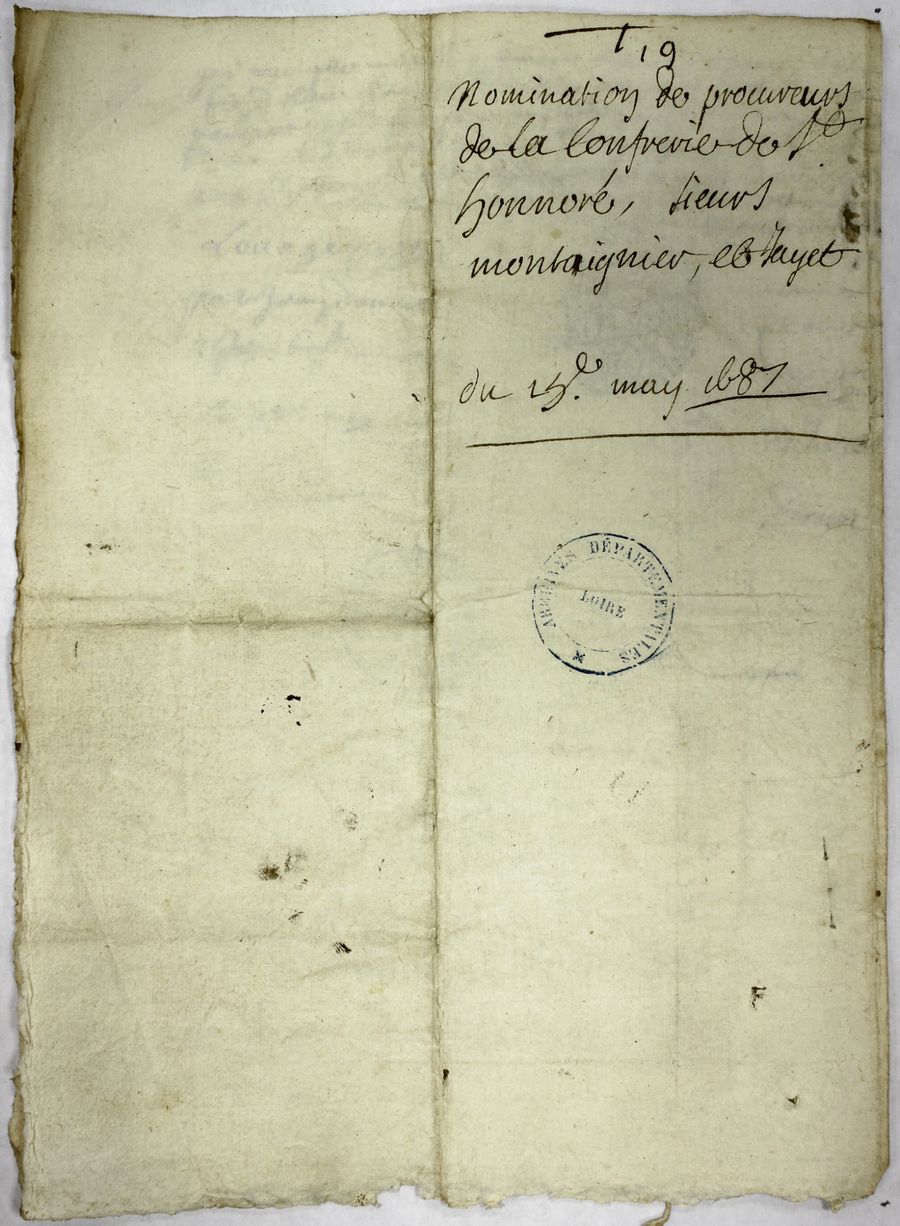 19
Nomination de procureurs
de la Confrerie de St
honnoré, sieurs
montaignier, et Jayet
du 15e. may 1687
ARCHIVES DÉPARTEMENTALES
LOIRE